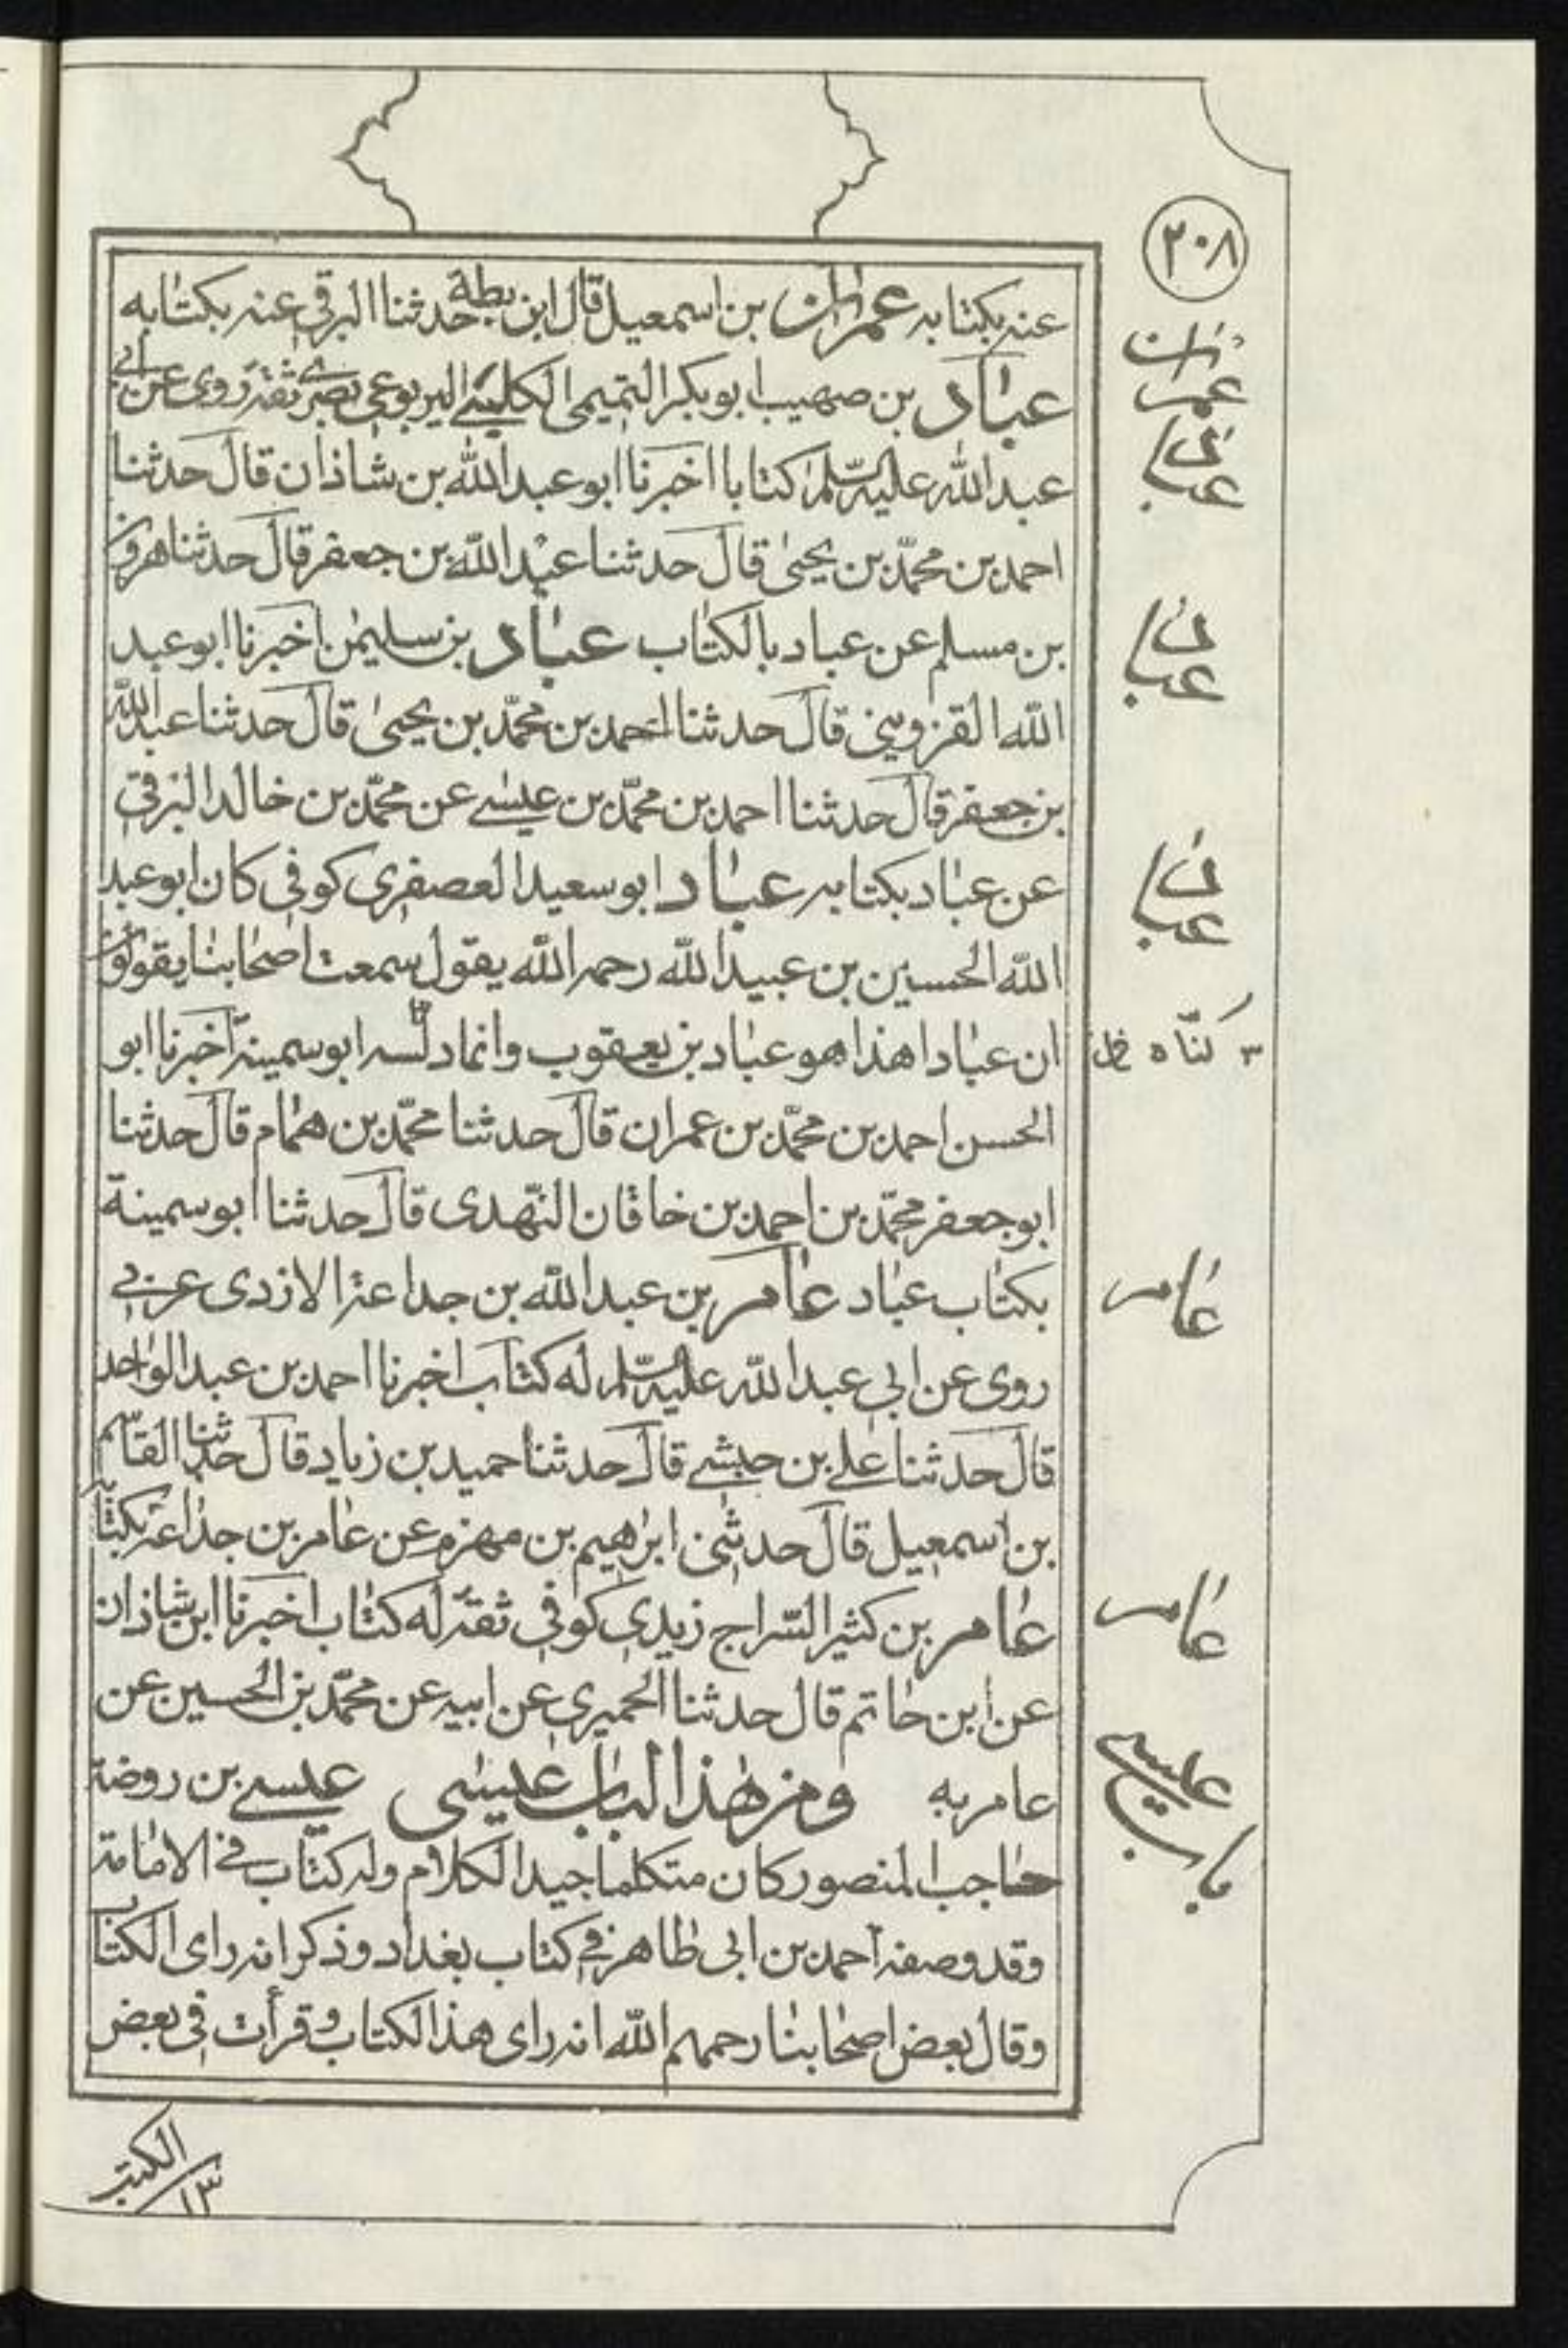 ٢٠٨
عنه بكتابه عمران بن اسمعيل قال ابن بطة حدثنا البرقي عنه بكتابه
عباد بن صهيب ابو بكر التميمى الكليبي اليربوعي بصري ثقة روى عن ابي
عبد الله عليه السلم كتابا اخبرنا ابو عبد الله بن شاذان قال حدثنا
احمد بن محمد بن يحيى قال حدثنا عبد الله بن جعفر قال حدثنا هرون
بن مسلم عن عباد بالكتاب عباد بن سليمن اخبرنا ابو عبد
الله القزويني قال حدثنا احمد بن محمد بن يحيى قال حدثنا عبد الله
بن جعفر قال حدثنا احمد بن محمد بن عيسى عن محمد بن خالد البرقي
عن عباد بكتابه عباد ابو سعيد العصفرى كوفي كان ابو عبد
الله الحسين بن عبيد الله رحمه الله يقول سمعت اصحابنا يقولون
ان عبادا هذا هو عباد بن يعقوب وانما دلسه ابو سمينة اخبرنا ابو
الحسن احمد بن محمد بن عمران قال حدثنا محمد بن همام قال حدثنا
ابو جعفر محمد بن احمد بن خاقان النهدى قال حدثنا ابو سمينة
بكتاب عباد عامر بن عبد الله بن جداعة الازدى عربي
روى عن ابي عبد الله عليه السلم له كتاب اخبرنا احمد بن عبد الواحد
قال حدثنا علي بن حبشي قال حدثنا حميد بن زياد قال حدثنا القاسم
بن اسمعيل قال حدثنى ابراهيم بن مهزم عن عامر بن جذاعة بكتابه
عامر بن كثير السراج زيدي كوفي ثقة له كتاب اخبرنا ابن شاذان
عن ابن حاتم قال حدثنا الحميري عن ابيه عن محمد بن الحسين عن
عامر به ومن هذا الباب عيسى عيسى بن روضة
حاجب المنصور كان متكلما جيد الكلام وله كتاب في الامامة
وقد وصفه احمد بن ابي طاهر في كتاب بغداد وذكر انه راى الكتاب
وقال بعض اصحابنا رحمهم الله انه راى هذا الكتاب وقرأت في بعض
عمران
عباد
عباد
عباد
٣ كناه خل
عامر
عامر
باب عيسى
الكتب
١٣